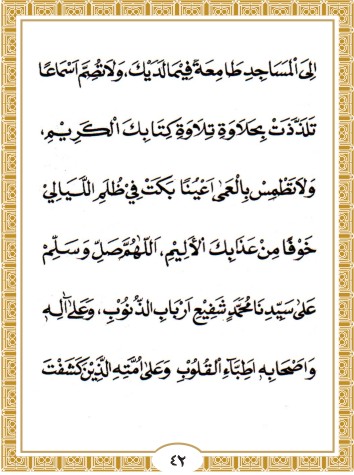 اِلَى الْمَسَاجِدِ طَامِعَةً فِيْمَا لَدَيْكَ، وَلَا تُصِمَّ اَسْمَاعًا
تَلَذَّذَتْ بِحَلَاوَةِ تِلَاوَةِ كِتَابِكَ الْكَرِيْمِ،
وَلَا تَطْمِسْ بِالْعَمَى اَعْيُنًا بَكَتْ فِيْ ظُلَمِ اللَّيَالِيْ
خَوْفًا مِنْ عَذَابِكَ الْأَلِيْمِ، اَللّٰهُمَّ صَلِّ وَسَلِّمْ
عَلَى سَيِّدِنَا مُحَمَّدٍ شَفِيْعِ اَرْبَابِ الذُّنُوْبِ، وَعَلَى اٰلِهِ
وَاَصْحَابِهِ اَطِبَّاءِ الْقُلُوْبِ وَعَلَى اُمَّتِهِ الَّذِيْنَ كَشَفْتَ
٤٢